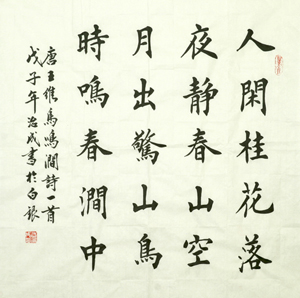 人閑桂花落
夜靜春山空
月出驚山鳥
時鳴春澗中
唐王維鳥鳴澗詩一首
戊子年治成書於白銀